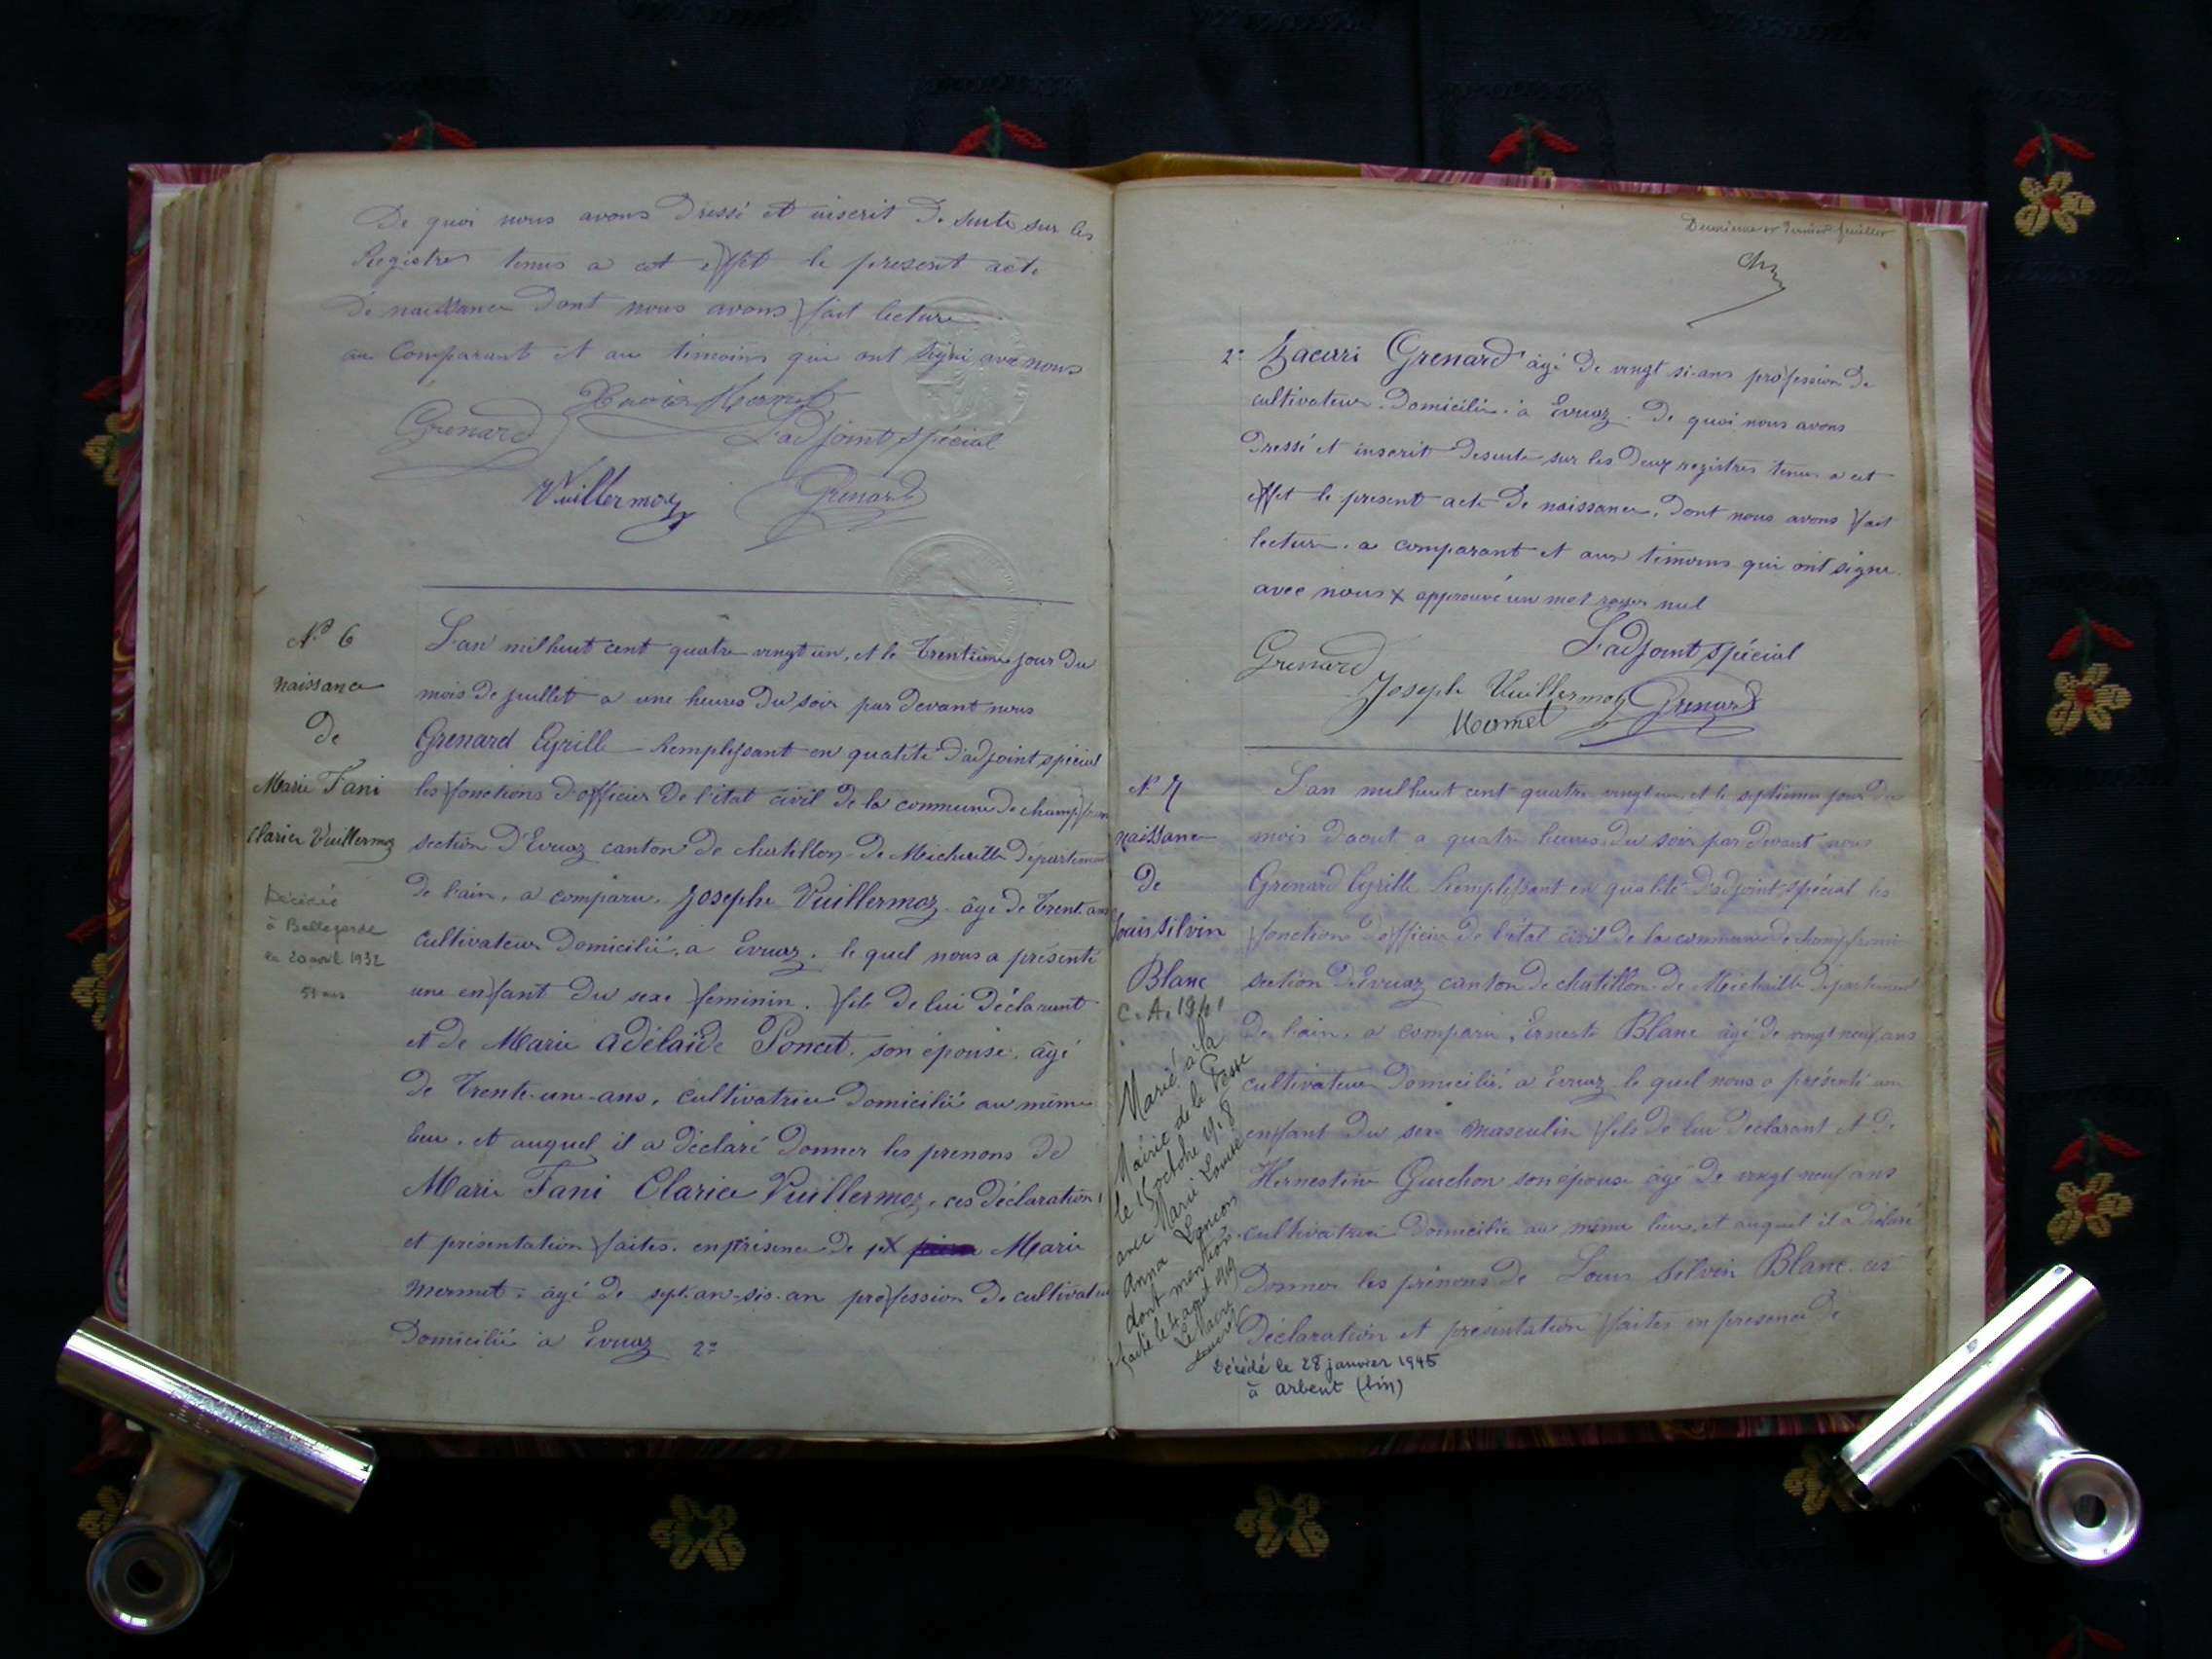 De quoi nous avons Dressé et inscrit De suite sur les
Registres tenus a cet effet le present acte
De naissance Dont nous avons fait lecture
au Comparant et au temoins qui ont signé avec nous
Mermet
Grenard L'adjoint spécial
Vuillermoz Grenard
N° 6
naissance
De
Marie Fani
Clarice Vuillermoz
Décédée
à Bellegarde
le 20 avril 1932
51 ans
L'an mil huit cent quatre vingt un, et le Trentième jour Du
mois De juillet a une heures Du soir par Devant nous
Grenard Cyrille Remplissant en qualité D'adjoint spécial
les fonctions D'officier De l'état civil De la commune De champfromier
section D'Evuaz canton De chatillon De Micheille Département
De l'ain, a comparu, Joseph Vuillermoz âgé De Trent ans
Cultivateur Domicilié, a Evuaz, le quel nous a présenté
une enfant Du sexe feminin, file De lui Déclarant
et De Marie Adélaïde Poncet, son épouse, âgé
De Trente-une-ans, Cultivatrice Domicilié au même
lieu, et auquel il a Déclaré Donner les prenons De
Marie Fani Clarice Vuillermoz, ces Déclaration
et présentation faites, en présence De Marie
Mermet, âgé De sept-an-sis-an profession De cultivateur
Domicilié à Evuaz 2°
Deuxième et Dernier feuillet
2° Zacari Grenard âgé De vingt si-ans profession De
cultivateur Domicilié à Evuaz. De quoi nous avons
Dressé et inscrit Desuite sur les Deux registres tenus a cet
effet le present acte De naissance, Dont nous avons fait
lecture, a comparant et aux témoins qui ont signé
avec nous x approuvé un mot rayer nul
L'adjoint spécial
Grenard Joseph Vuillermoz Grenard
Mermet
N° 7
naissance
De
Louis Silvin
Blanc
C. A. 1941
Marié à la
Mairie de la Pesse
le 15 octobre 1908
avec Marie Louise
Anna Lançon
dont mention
faite le 4 août 1919
Le Maire
L'an mil huit cent quatre vingt un, et le septieme jour Du
mois D'aout a quatre heures Du soir par Devant nous
Grenard Cyrille Remplissant en qualité D'adjoint spécial les
fonction D'officier De l'état civil De la commune De champfromier
section D'Evuaz canton De chatillon De Micheille Département
De l'ain, a comparu, Erneste Blanc âgé De vingt neuf ans
cultivateur Domicilié a Evuaz le quel nous a présenté un
enfant Du sexe masculin fils De lui Déclarant et De
Hernestine Guichon son épouse âgé De vingt neuf ans
cultivatrice Domicilié au même lieu, et auquel il a Déclaré
Donner les prénons De Louis Silvin Blanc, ces
Déclaration et présentation faites en presence De
Décédé le 28 janvier 1945
à Arbent (Ain)